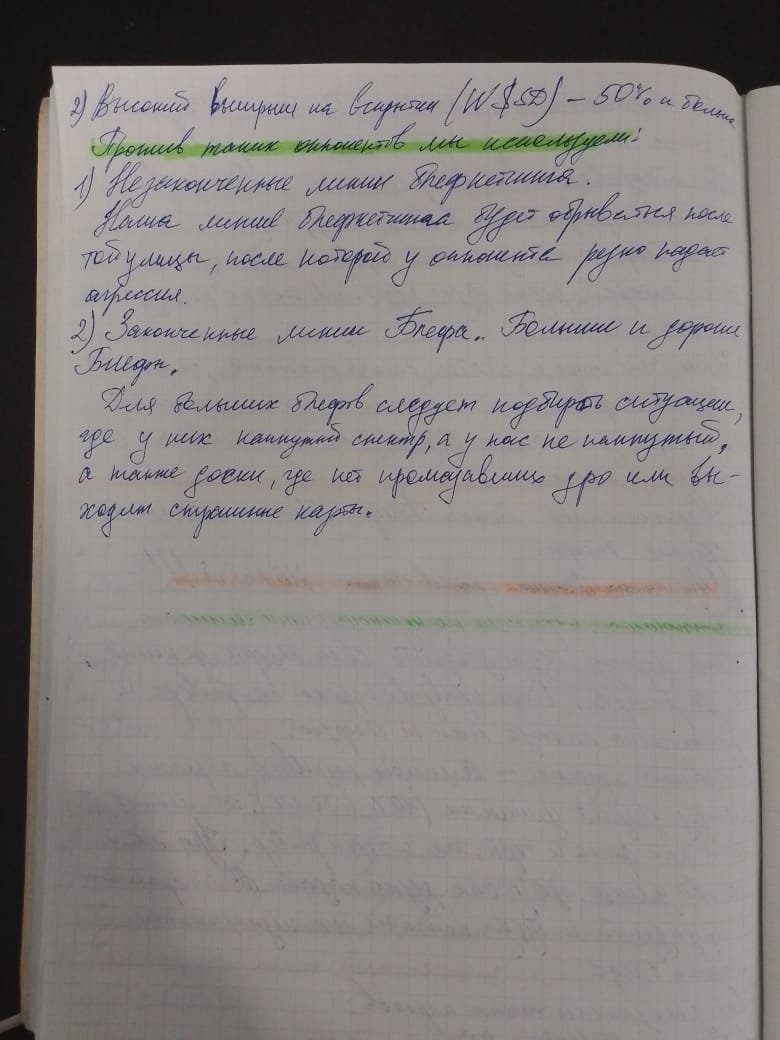 2) Высокий выигрыш на вскрытии (W$SD) – 50% и больше
Против таких оппонентов мы используем:
1) Незаконченные линии блефкетчинга.
Наша линия блефкетчинга будет обрываться после
той улицы, после которой у оппонента резко падает
агрессия.
2) Законченные линии Блефа. Большие и дорогие
Блефы.
Для больших блефов следует подбирать ситуации,
где у них капнутый спектр, а у нас не капнутый,
а также доски, где нет промазавших дро или вы-
ходят страшные карты.